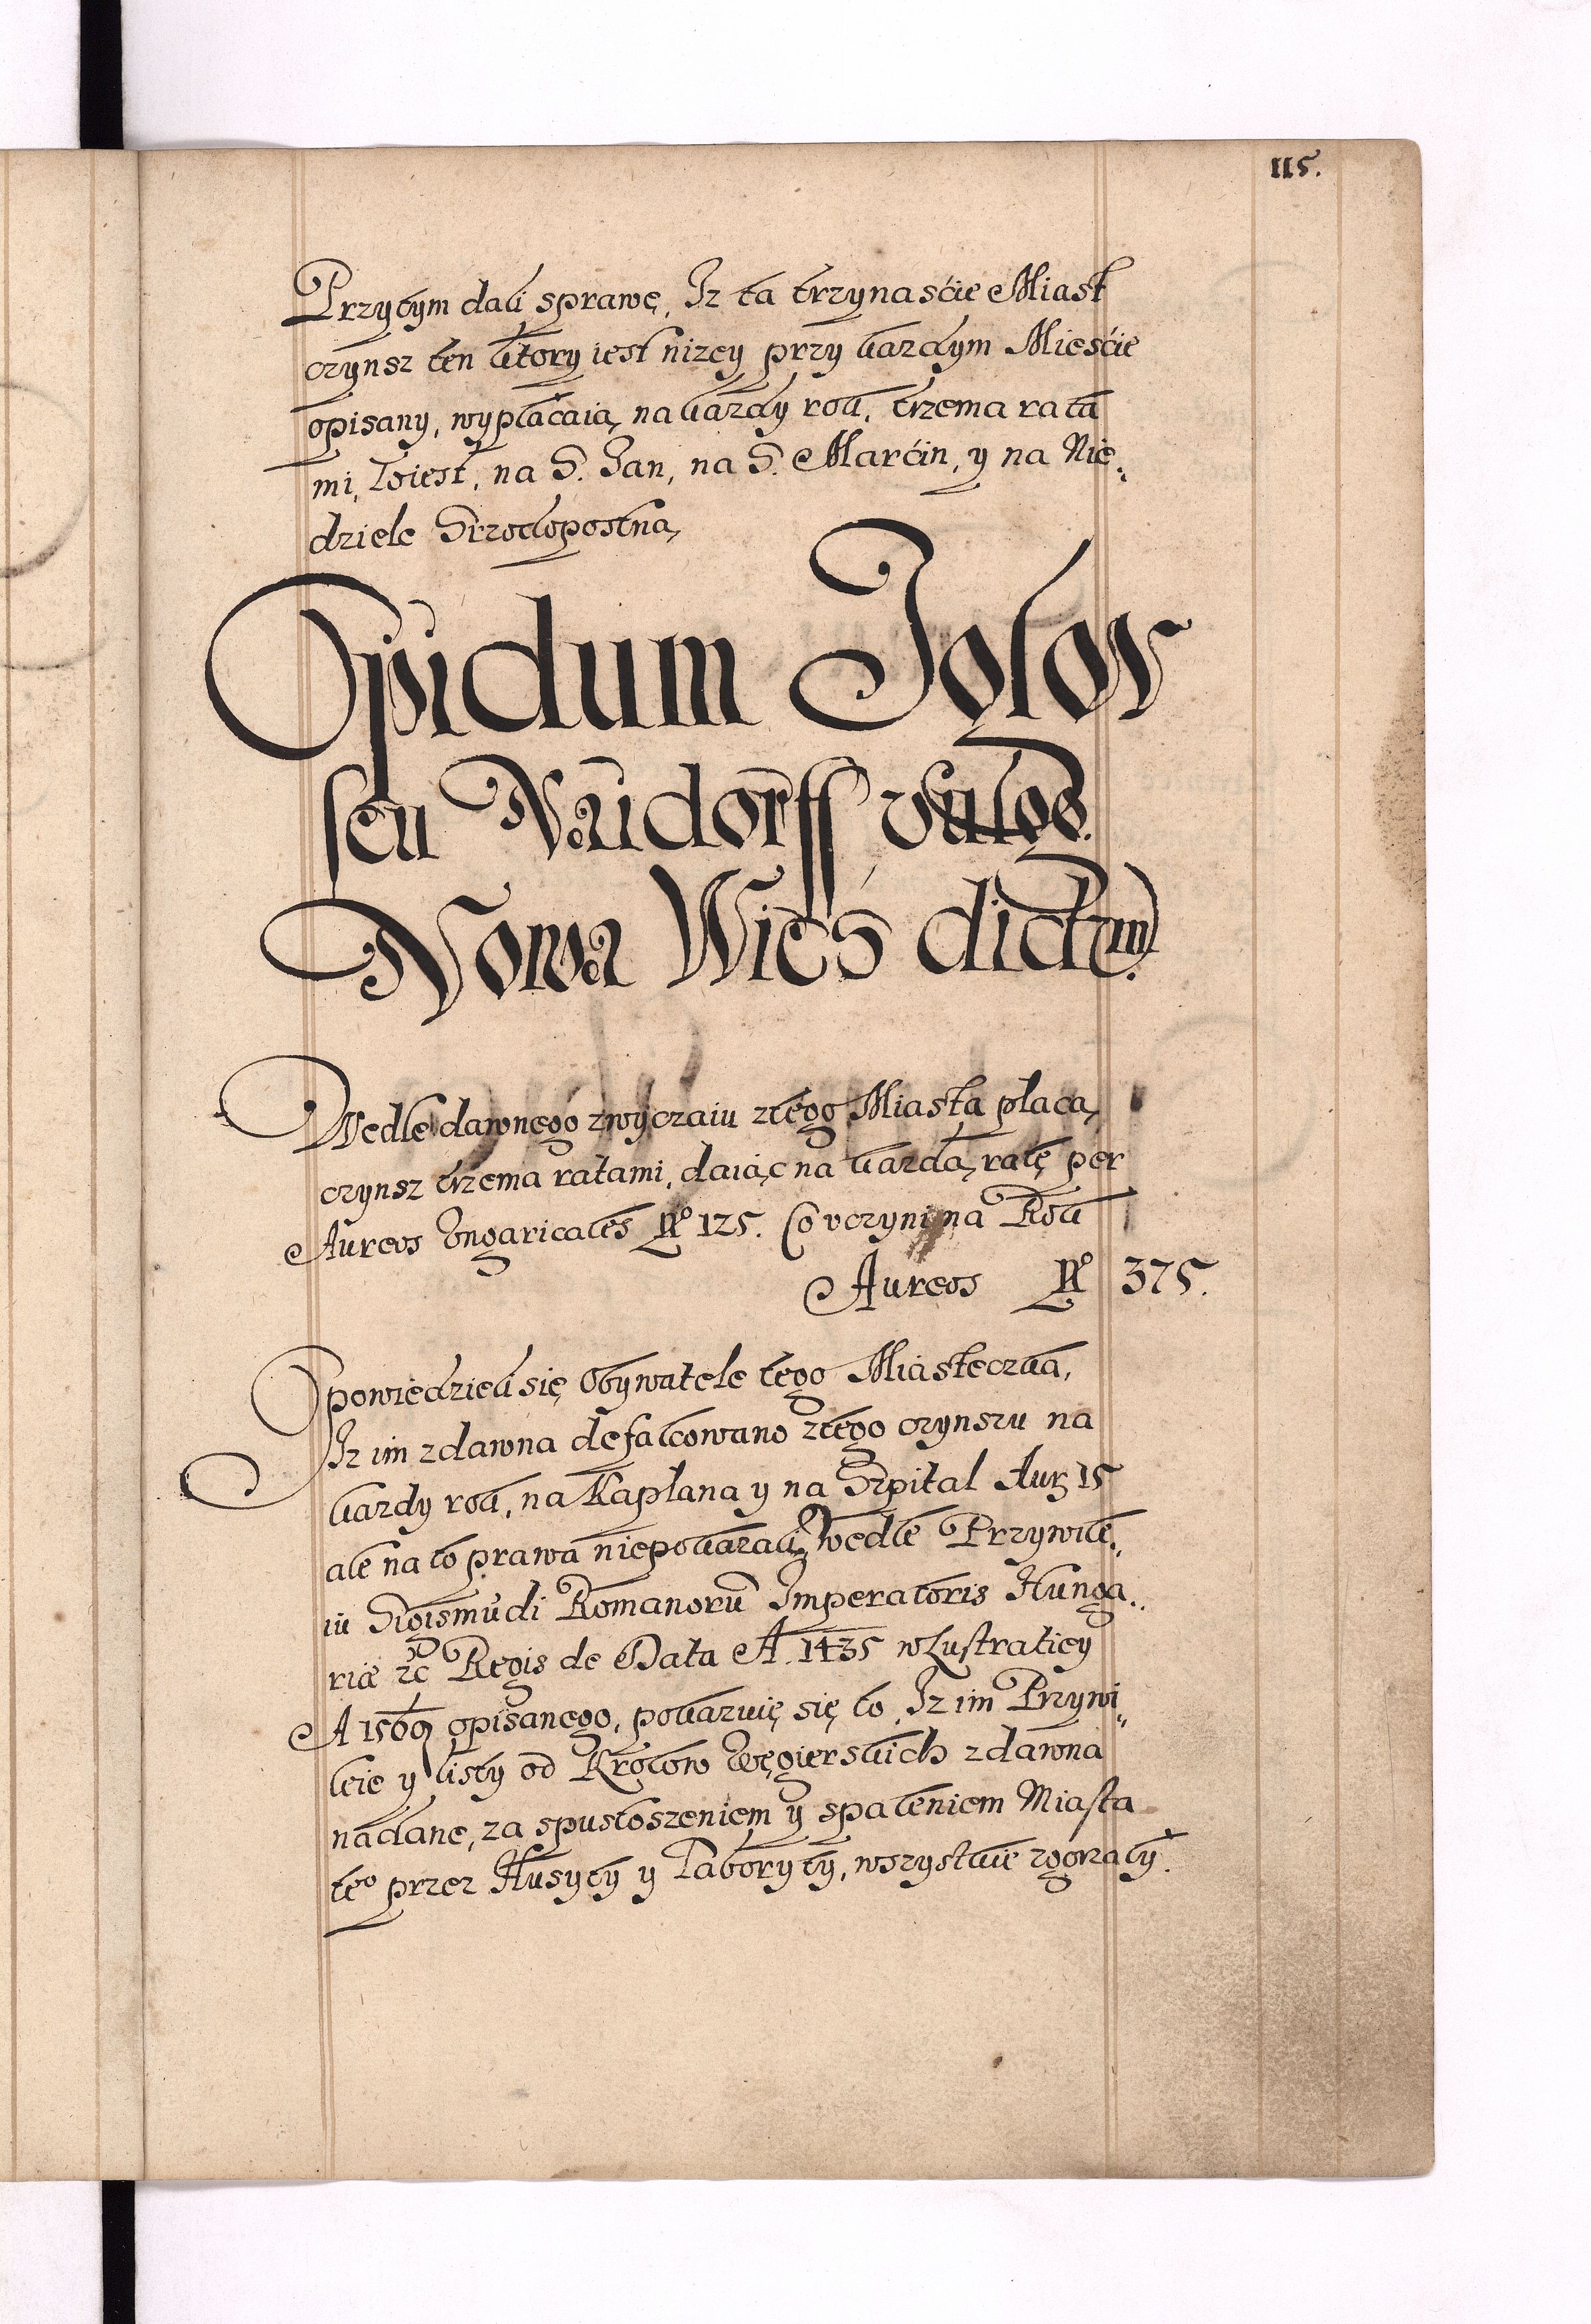 115.
Przytym dali sprawę, Iz ta trzynaśćie Miast
czynsz ten ktory iest nizey przy kazdym Mieśćie
opisany, wypłacaią na kazdy rok, trzema rata
mi, toiest, na S. Jan, na S. Marćin, y na Nie„
dziele Srzodopostną
Opidum Iglov
seu Naudorff vulgo.
Nowa Wieś dictum.
Wedle dawnego zwyczaiu ztego Miasta płacą
czynsz trzema ratami, daiąc na kazdą ratę per
Aureos Vngaricales No 125. Co vczyni na Rok
Aureos No 375.
Opowiedzieli się Obywatele tego Miasteczka,
Iz im zdawna defalcowano ztego czynszu na
kazdy rok, na Kapłana y na Szpital Aur 15
ale na to prawa niepokazali, Wedle Przywile„
iu Sigismūdi Romanorū Imperatoris Hunga„
riæ zc Regis de Data A. 1435 w Lustratiey
A 1569 opisanego, pokazuię się to, Iz im Przywi„
leie y listy od Krolow Węgierskich zdawna
nadane, za spustoszeniem y spaleniem Miasta
teo przez Husyty y Taboryty, wszystkie zgorzały.